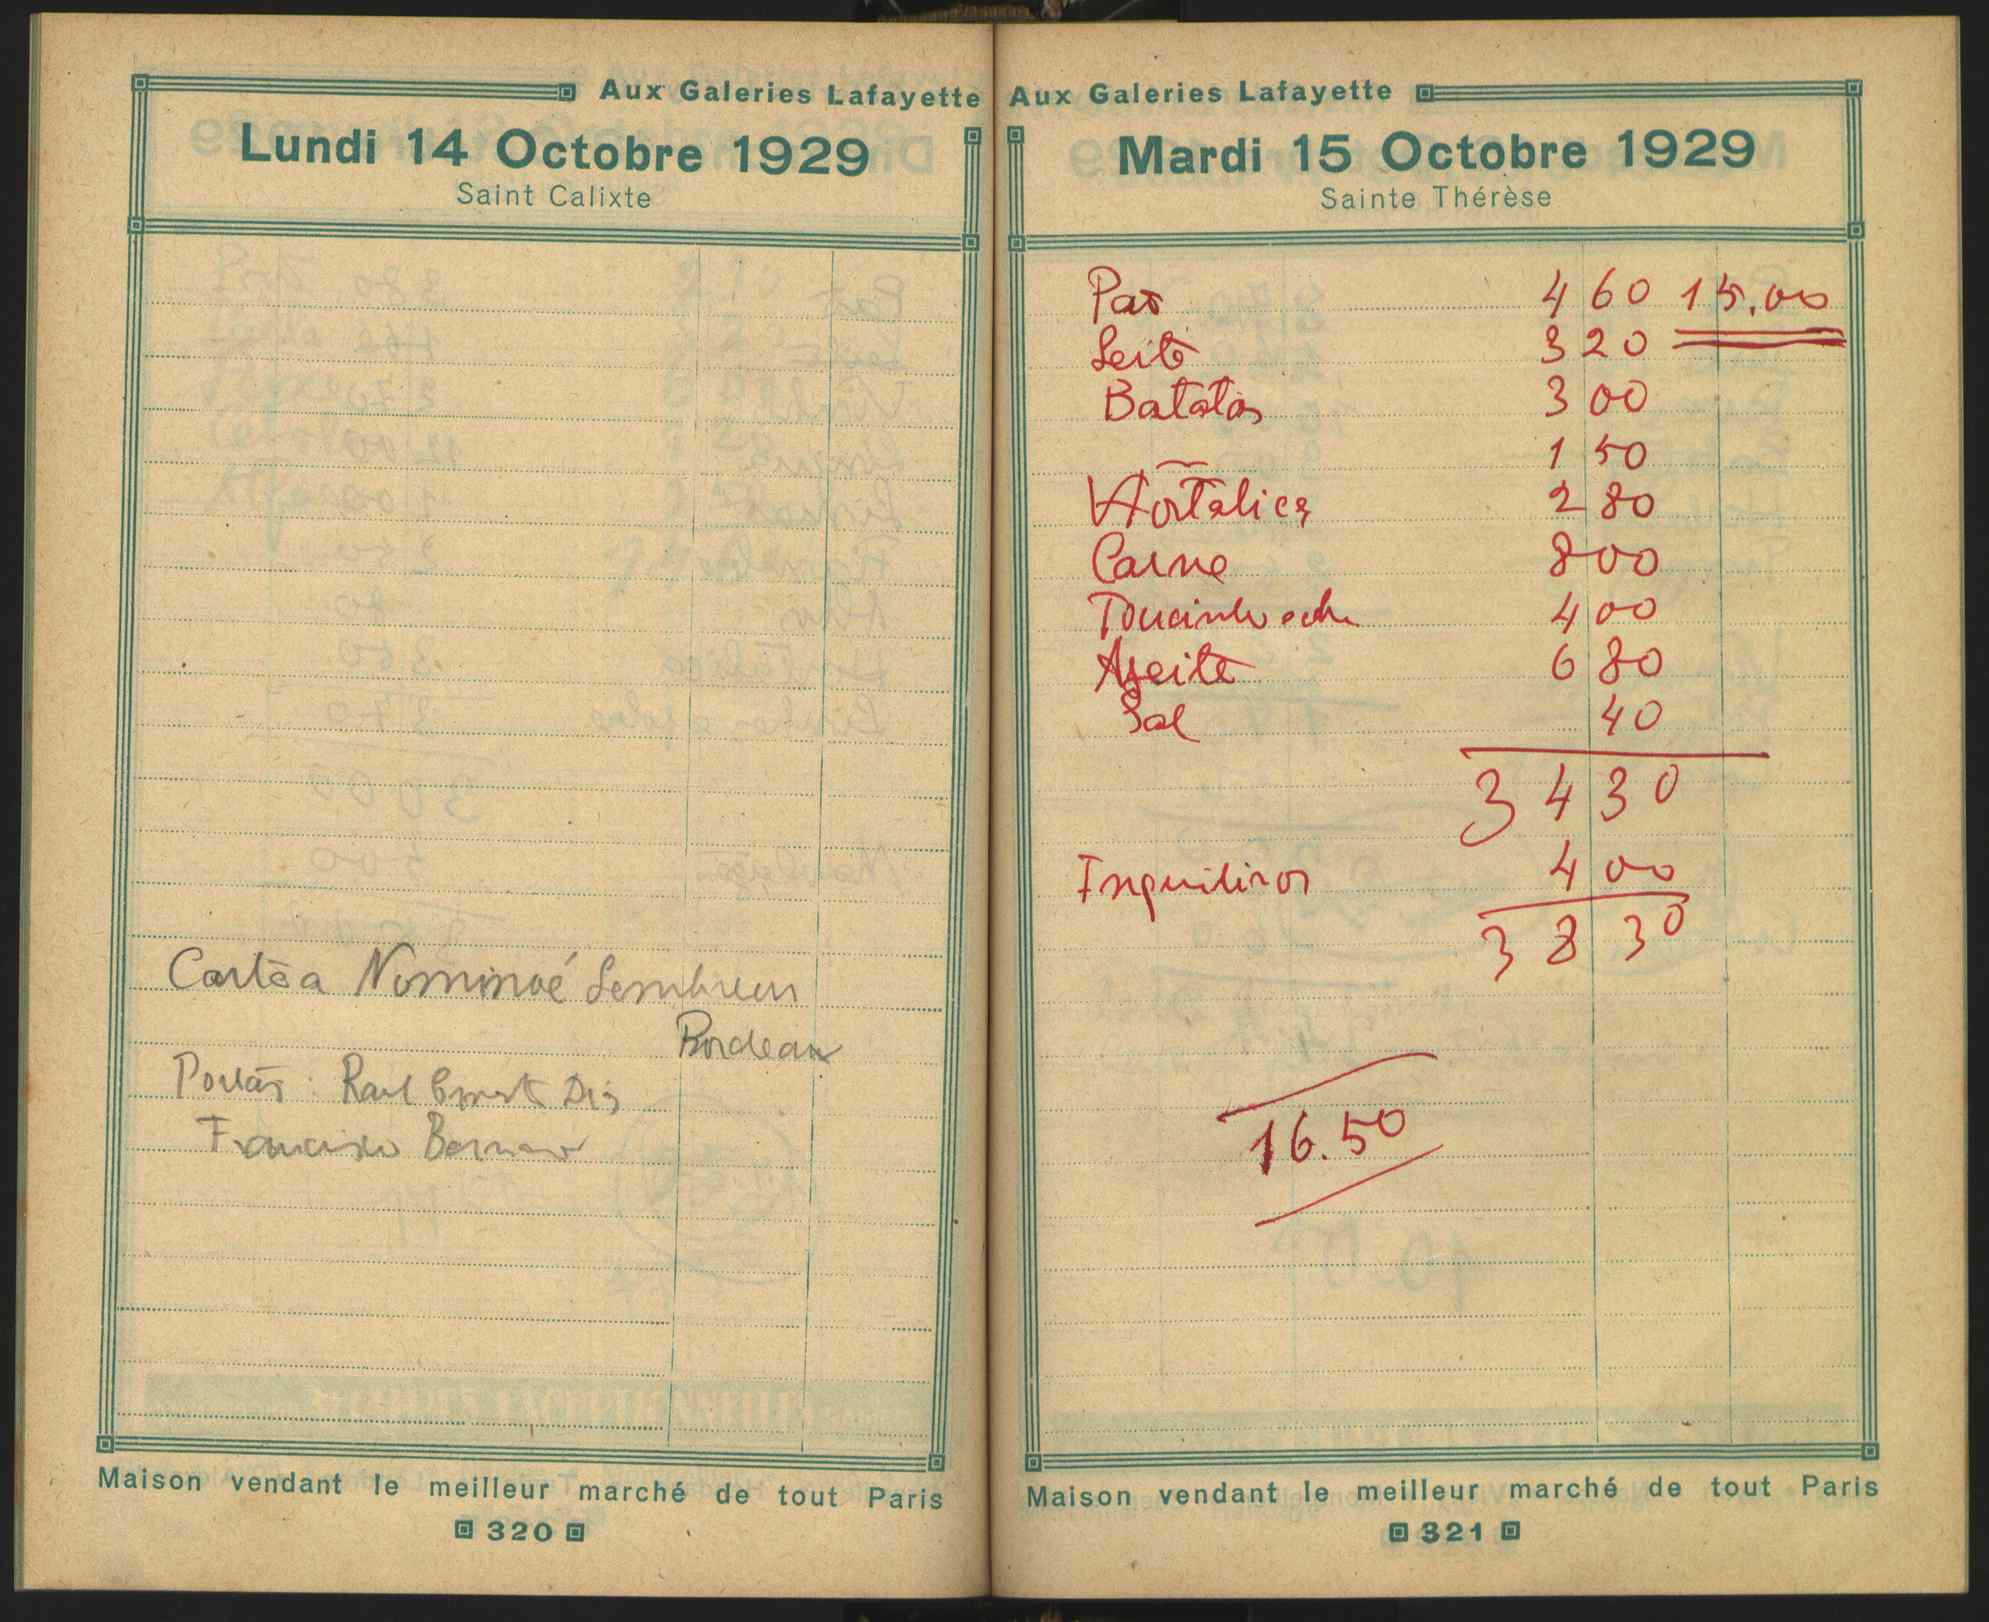 Aux Galeries Lafayette
Lundi 14 Octobre 1929
Saint Calixte
Carta a Nominoé
Bordeaux
Francisco
Maison vendant le meilleur marché de tout Paris
320
Aux Galeries Lafayette
Mardi 15 Octobre 1929
Sainte Thérèse
Pão 460 15.00
Leite 320
Batatas 300
150
Hortaliça 280
Carne 800
Toucinho 400
Azeite 680
Sal 40
3430
Inquilinos 400
3830
16.50
Maison vendant le meilleur marché de tout Paris
321